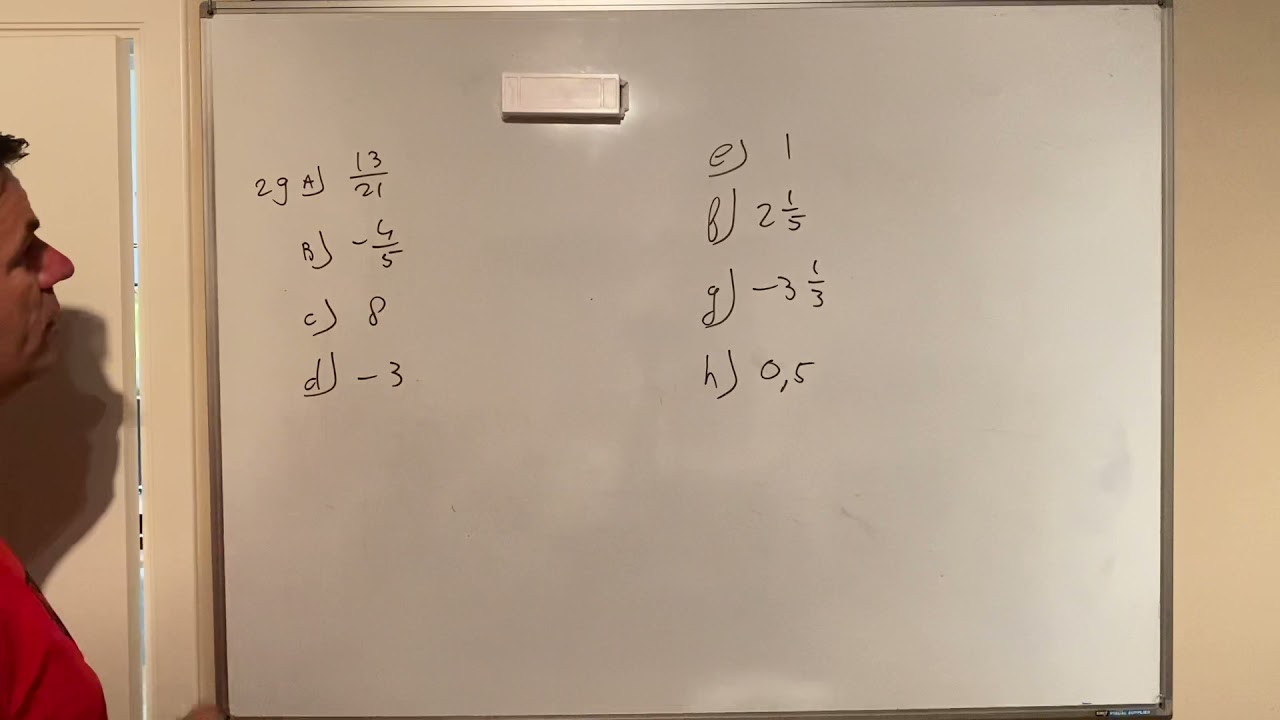 29 A) 13/21
B) -4/5
c) 8
d) -3
e) 1
f) 2 1/5
g) -3 1/3
h) 0,5